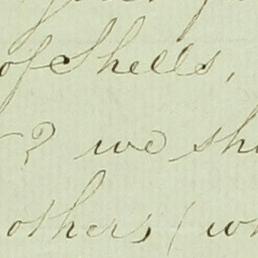 of Shells,
? we sh
others, (w